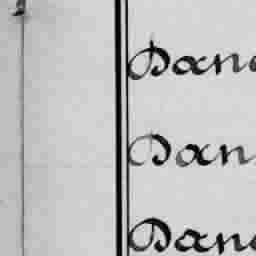 Dana
Dan
Dana